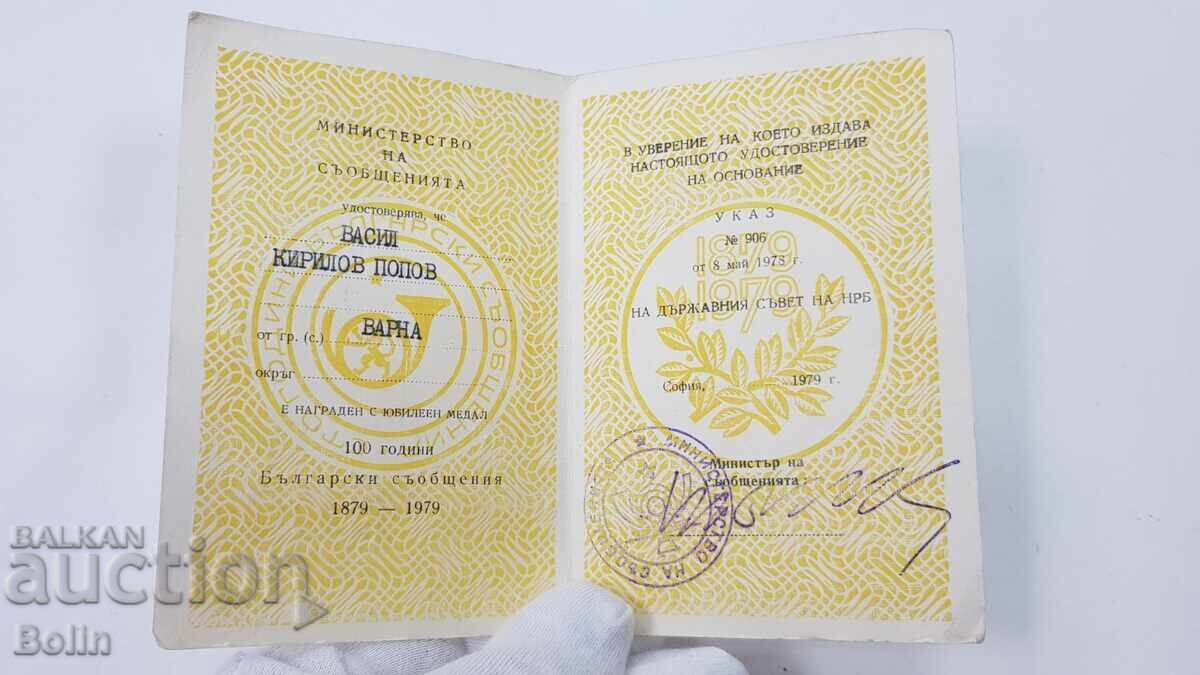 МИНИСТЕРСТВО
НА
СЪОБЩЕНИЯТА
удостоверява, че
ВАСИЛ
КИРИЛОВ ПОПОВ
ВАРНА
от гр. (с.)
окръг
Е НАГРАДЕН С ЮБИЛЕЕН МЕДАЛ
100 ГОДИНИ
Български съобщения
1879 — 1979
В УВЕРЕНИЕ НА КОЕТО ИЗДАВА
НАСТОЯЩОТО УДОСТОВЕРЕНИЕ
НА ОСНОВАНИЕ
УКАЗ
№ 906
от 8 май 1978 г.
НА ДЪРЖАВНИЯ СЪВЕТ НА НРБ
1879
1979
София, 1979 г.
Министър на
съобщенията:
МИНИСТЕРСТВО НА
BALKAN
auction
Bolin